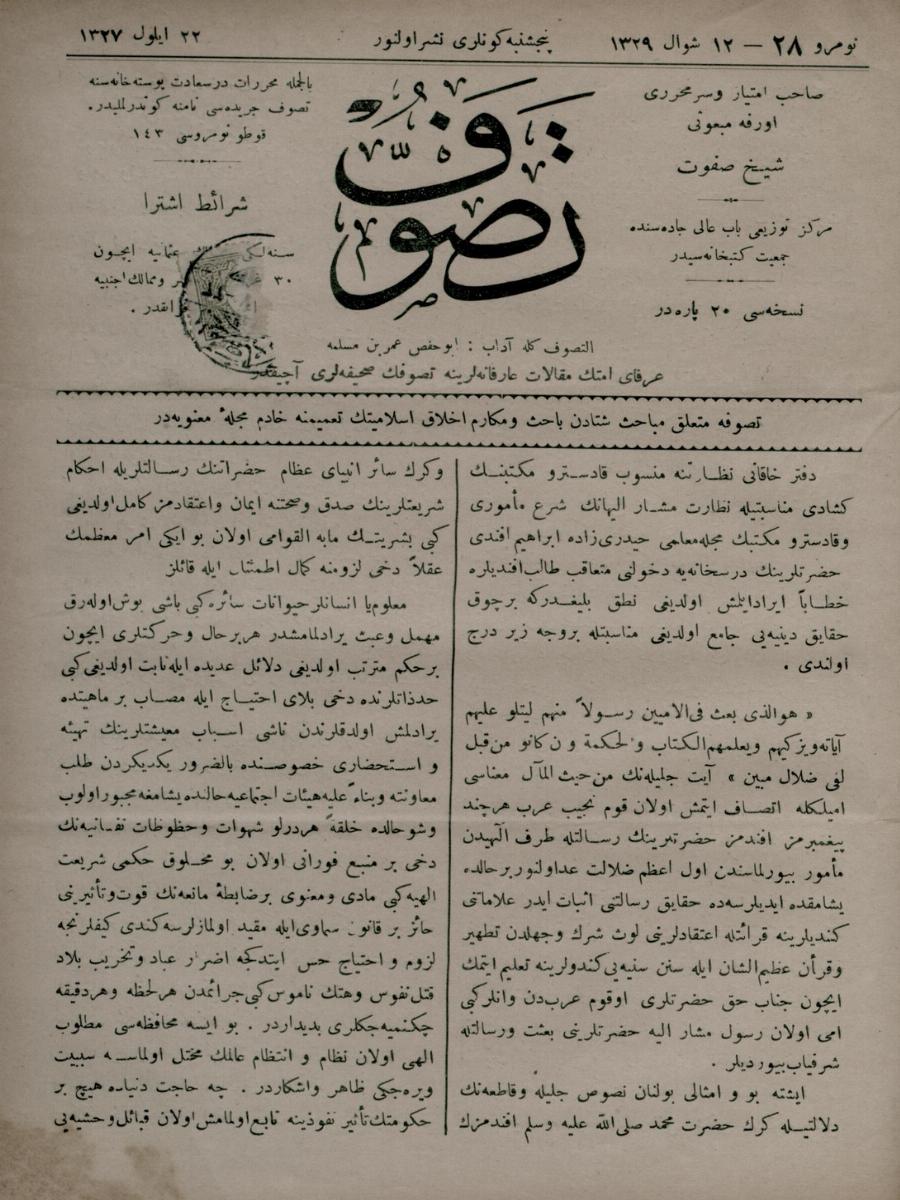 نومرو ٢٨ — ١٢ شوال ١٣٢٩
پنجشنبه كونلرى نشر اولنور
٢٢ ايلول ١٣٢٧
صاحب امتياز وسرمحررى
اورفه مبعوثى
شيخ صفوت
مركز توزيعى باب عالى جاده سنده
جمعيت كتبخانه سيدر
نسخه سى ٢٠ پاره در
تصوف
بالجمله محررات درسعادت پوسته خانه سنه
تصوف جريده سى نامنه كوندرلمليدر.
قوطو نومروسى ١٤٣
شرائط اشترا
سنه لكى عثمانيه ايچون
٣٠ وممالك اجنبيه
فرانقدر.
التصوف كله آداب : ابوحفص عمر بن مسلمه
عرفاى امتك مقالات عارفانه لرينه تصوفك صحيفه لرى آچيقدر
تصوفه متعلق مباحث شتادن باحث ومكارم اخلاق اسلاميتك تعميمنه خادم مجلهٔ معنويه در
دفتر خاقانى نظارتنه منسوب قادسترو مكتبنك
كشادى مناسبتيله نظارت مشار اليهانك شرع مأمورى
وقادسترو مكتبك مجله معلمى حيدرى زاده ابراهيم افندى
حضرتلرينك درسخانه يه دخولنى متعاقب طالب افنديلره
خطاباً ايراد ايلمش اولديغى نطق بليغدركه برچوق
حقايق دينيه يى جامع اولديغى مناسبتله بروجه زير درج
اولندى .
« هوالذى بعث فى الاميين رسولاً منهم ليتلو عليهم
آياته ويزكيهم ويعلمهم الكتاب والحكمة و ن كانو من قبل
لفى ضلال مبين » آيت جليله نك من حيث المآل معناسى
اميلكله اتصاف ايتمش اولان قوم نجيب عرب هرچند
پيغمبرمز افندمز حضرتلرينك رسالتله طرف الهيدن
مأمور بيورلماسندن اول اعظم ضلالت عد اولنور برحالده
يشامقده ايديلرسه ده حقايق رسالتنى اثبات ايدر علاماتنى
كنديلرينه قرائتله اعتقادلرينى لوث شرك وجهلدن تطهير
وقرأن عظيم الشان ايله سنن سنيه يى كندولرينه تعليم ايتمك
ايچون جناب حق حضرتلرى اوقوم عربدن وانلر كبى
امى اولان رسول مشار اليه حضرتلرينى بعثت ورسالتله
شرفياب بيورديلر .
ايشته بو و امثالى بولنان نصوص جليله وقاطعه نك
دلالتيله كرك حضرت محمد صلى الله عليه وسلم افندمزك
وكرك سائر انبياى عظام حضراتنك رسالتلريله احكام
شريعتلرينك صدق وصحتنه ايمان واعتقادمز كامل اولديغى
كبى بشريتك مابه القوامى اولان بو ايكى امر معظمك
عقلاً دخى لزومنه كمال اطمئنان ايله قائلز
معلوم يا انسانلر حيوانات سائره كبى باشى بوش اوله رق
مهمل وعبث يرادلمامشدر هر بر حال وحركتلرى ايچون
بر حكم مترتب اولديغى دلائل عديده ايله ثابت اولديغى كبى
حد ذاتلرنده دخى بلاى احتياج ايله مصاب بر ماهيتده
يرادلمش اولدقلرندن ناشى اسباب معيشتلرينك تهيئه
و استحضارى خصوصنده بالضرور يكديكردن طلب
معاونته وبناءً عليه هيئات اجتماعيه حالنده يشامغه مجبور اولوب
وشو حالده خلقةً هر درلو شهوات وحظوظات نفسانيه نك
دخى بر منبع فورانى اولان بو مخلوق حكمى شريعت
الهيه كبى مادى ومعنوى بر ضابطهٔ مانعه نك قوت وتأثيرينى
حائز بر قانون سماوى ايله مقيد اولمازلرسه كندى كيفلرنجه
لزوم و احتياج حس ايتدكجه اضرار عباد وتخريب بلاد
قتل نفوس وهتك ناموس كبى جرائمدن هر لحظه وهر دقيقه
چكنميه جكلرى بديداردر . بو ايسه محافظه سى مطلوب
الهى اولان نظام و انتظام عالمك مختل اولماسنه سببيت
ويره جكى ظاهر واشكاردر . چه حاجت دنياده هيچ بر
حكومتك تأثير نفوذينه تابع اولمامش اولان قبائل وحشيه يى